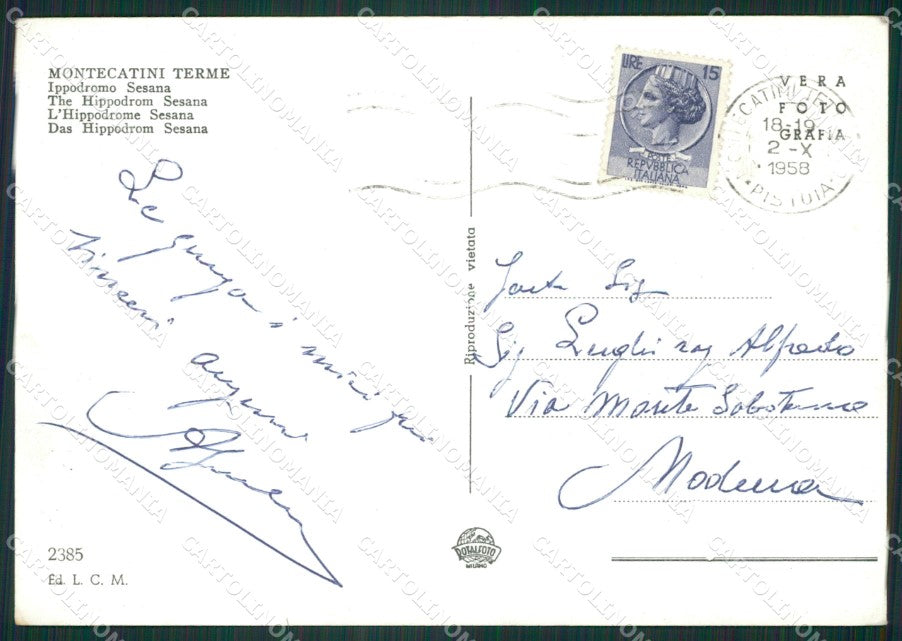 MONTECATINI TERME
Ippodromo Sesana
The Hippodrom Sesana
L'Hippodrome Sesana
Das Hippodrom Sesana
LIRE 15
POSTE
REPVBBLICA
ITALIANA
VERA
FOTO
GRAFIA
18-19
2-X
1958
PISTOIA
Riproduzione vietata
Le giungano i miei più
sinceri auguri
Sig
Sig Lughi rag Alfredo
Via Monte Sabotino
Modena
2385
Ed. L. C. M.
ROTALFOTO
MILANO
CARTOLINOMANIA